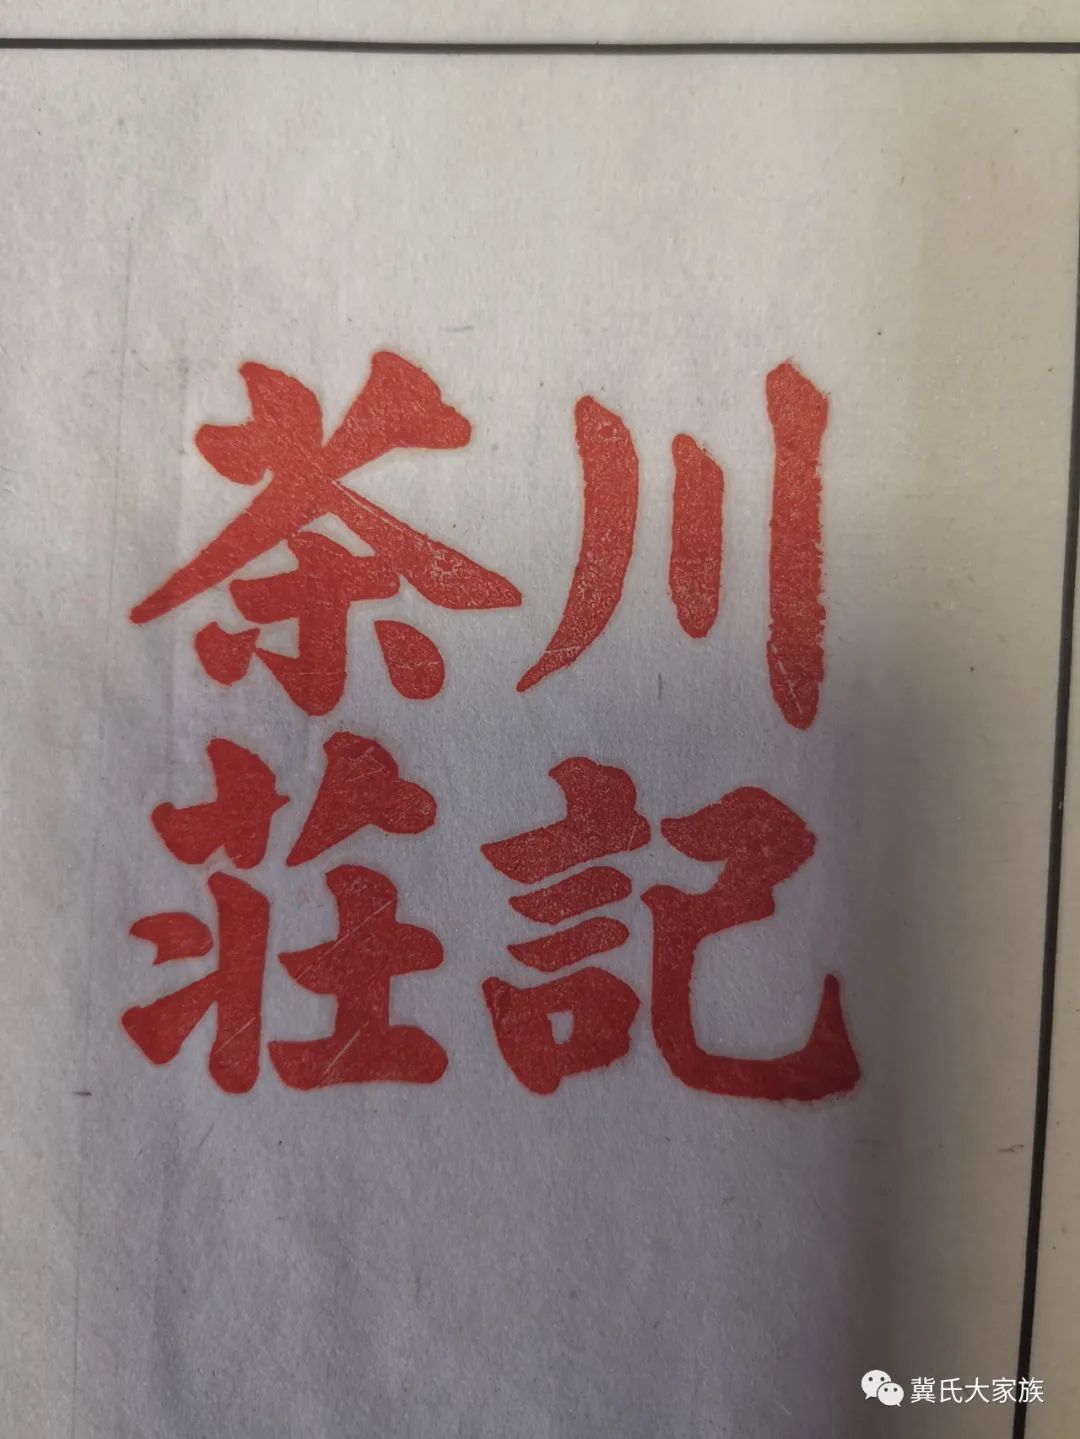 川記
茶莊
冀氏大家族